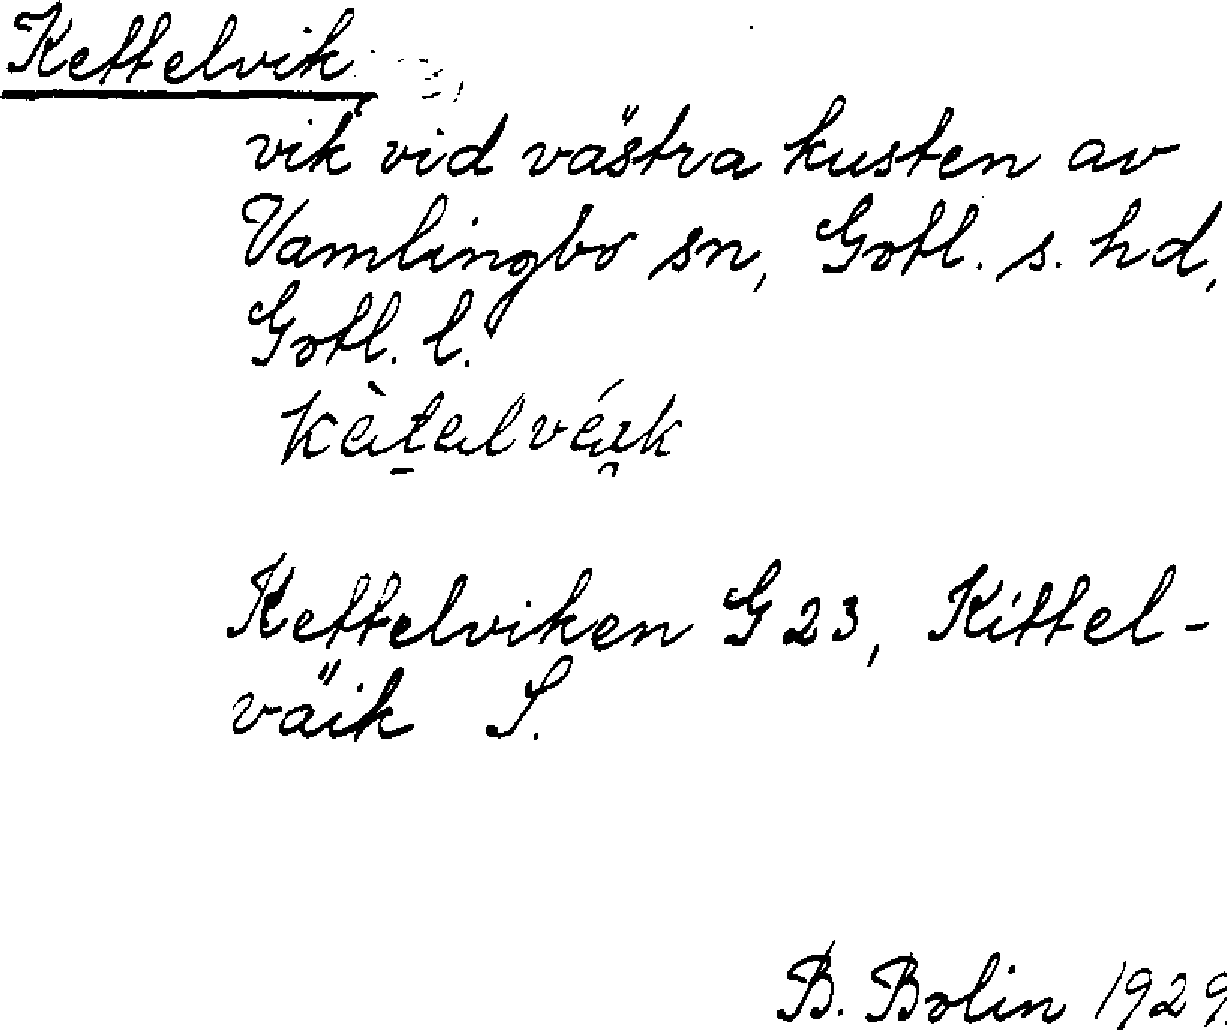 Kettelvik
vik vid västra kusten av
Vamlingbo sn, Gotl. s. hd,
Gotl. l.
Kettelviken G 23, Kittel-
väik S.
B. Bolin 1929.